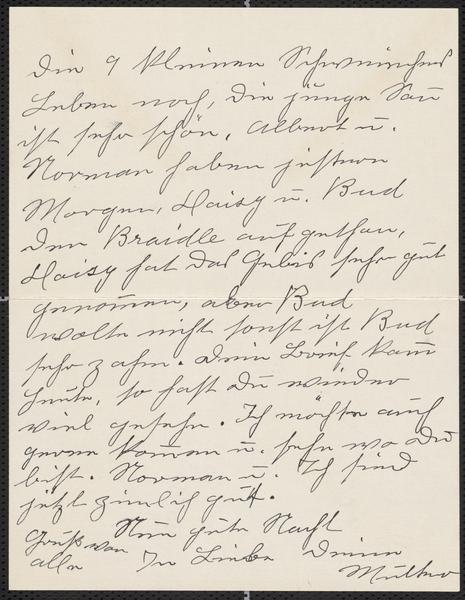 Die 9 kleinen Schweinches
Leben noch, die junge Sau
ist sehr schön, Albert u.
Norman haben gestern
Morgen, Daisy u. Bud
den Braidle auf gethan,
Daisy hat das Gebis sehr gut
genommen, aber Bud
wolte nicht sonst ist Bud
sehr zahm. Dein Brief kam
heute, so hast du wieder
viel gesehn. Ich möchte auch
gerne kommen u. sehn wo du
bist. Norman u. Ich sind
jetzt zimlich gut.
Nun gute Nacht
Gruß von
alle
In Liebe Deine
Mutter